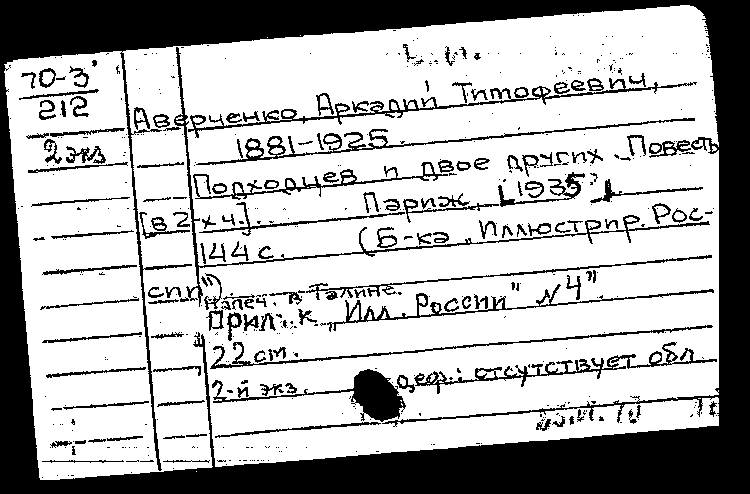 70-3
212
2 экз
Аверченко, Аркадий Тимофеевич,
1881-1925.
Подходцев и двое других. Повесть
[в 2-х ч.]. Париж, [1935?].
144 с. (Б-ка „Иллюстрир. Рос-
сии")
Напеч. в Талине.
Прил. к „Илл. России" № 4".
22 см.
2-й экз. деф.: отсутствует обл.